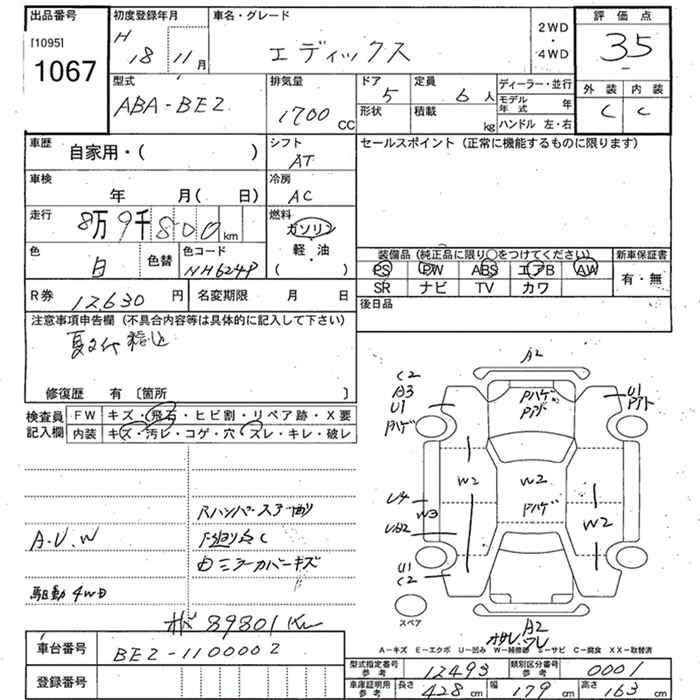 出品番号
[1095]
1067
初度登録年月
H 18 11月
車名・グレード
エディックス
2WD
・
4WD
評価点
35
外装 内装
C C
型式
ABA-BE2
排気量
1700 CC
ドア
5
定員
6人
形状
積載
kg
ディーラー・並行
モデル年式 年
ハンドル 左・右
車歴
自家用・( )
シフト
AT
セールスポイント(正常に機能するものに限ります)
車検
年 月( 日)
冷房
AC
走行
8万9千800km
燃料
ガソリン
軽・油
( )
色
白
色替
色コード
NH624P
装備品(純正品に限り○をつけてください)
新車保証書
PS PW ABS エアB AW
SR ナビ TV カワ
有・無
R券 12630円
名変期限 月 日
後日品
注意事項申告欄(不具合内容等は具体的に記入して下さい)
修復歴 有〔箇所 〕
検査員記入欄
FW キズ・飛石・ヒビ割・リペア跡・X要
内装 キズ・汚レ・コゲ・穴・スレ・キレ・破レ
A.V.W
駆動4WD
89801 Km
A2
C2
A3
U1
Pハゲ
Pハゲ
U1
W2
W2
Pハゲ
W2
U4
W3
UA2
U1
C2
スペア
A2
A-キズ E-エクボ U-凹み W-補修跡 S-サビ C-腐食 XX-取替済
車台番号
BE2-1100002
登録番号
型式指定番号
参考
12493
類別区分番号
参考
0001
車庫証明用
参考
長さ 428cm 幅 179cm 高さ 163cm